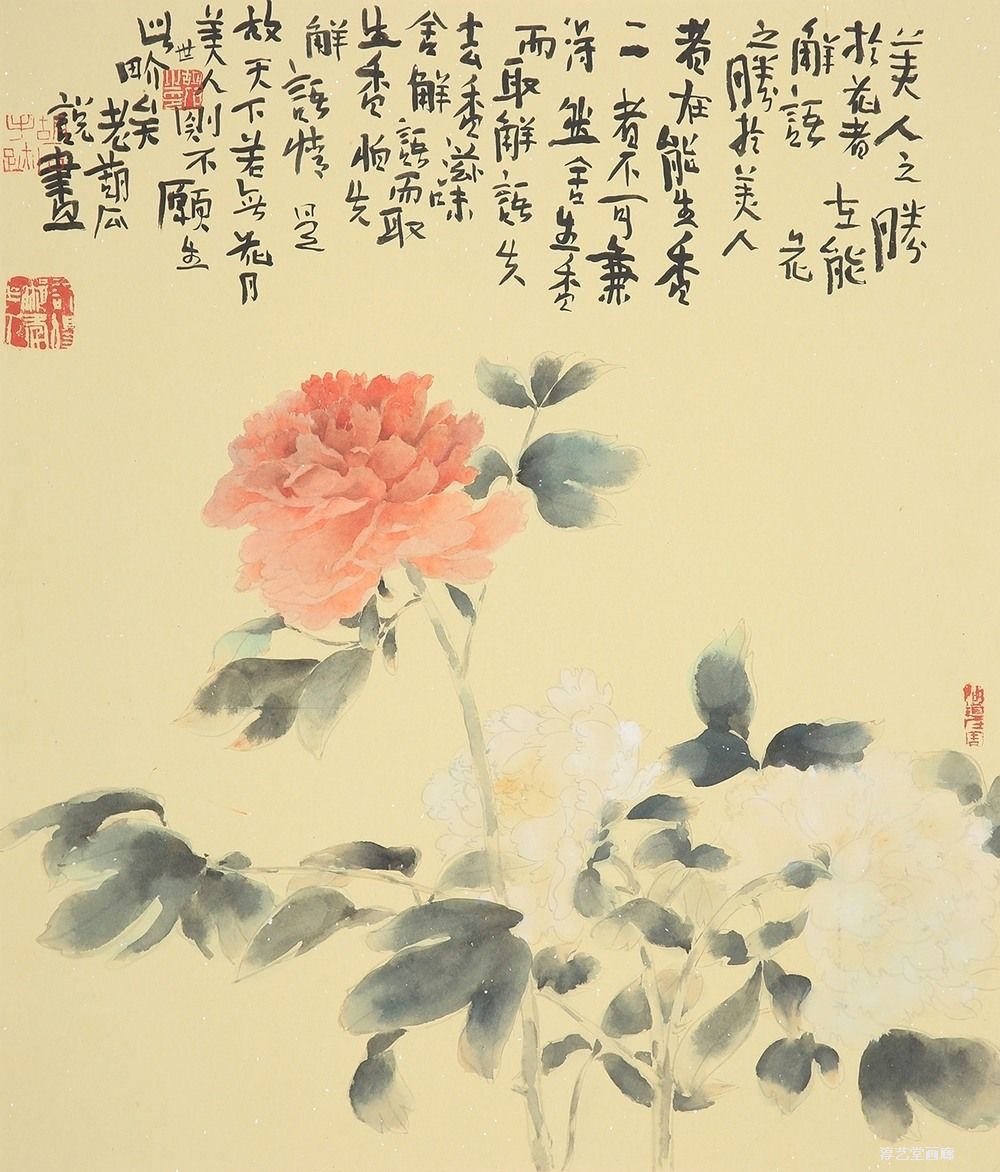 美人之勝
於花者在能
解語花
之勝於美人
者在能生香
二者不可兼
得然舍生香
而取解語失
去香滋味
舍解語而取
生香怕失
解語情是
故天下若無花月
美人則不願生
此世界矣
老葫瓜
說畫
淳艺堂画廊